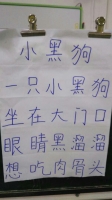 小黑狗
一只小黑狗
坐在大门口
眼睛黑溜溜
想吃肉骨头